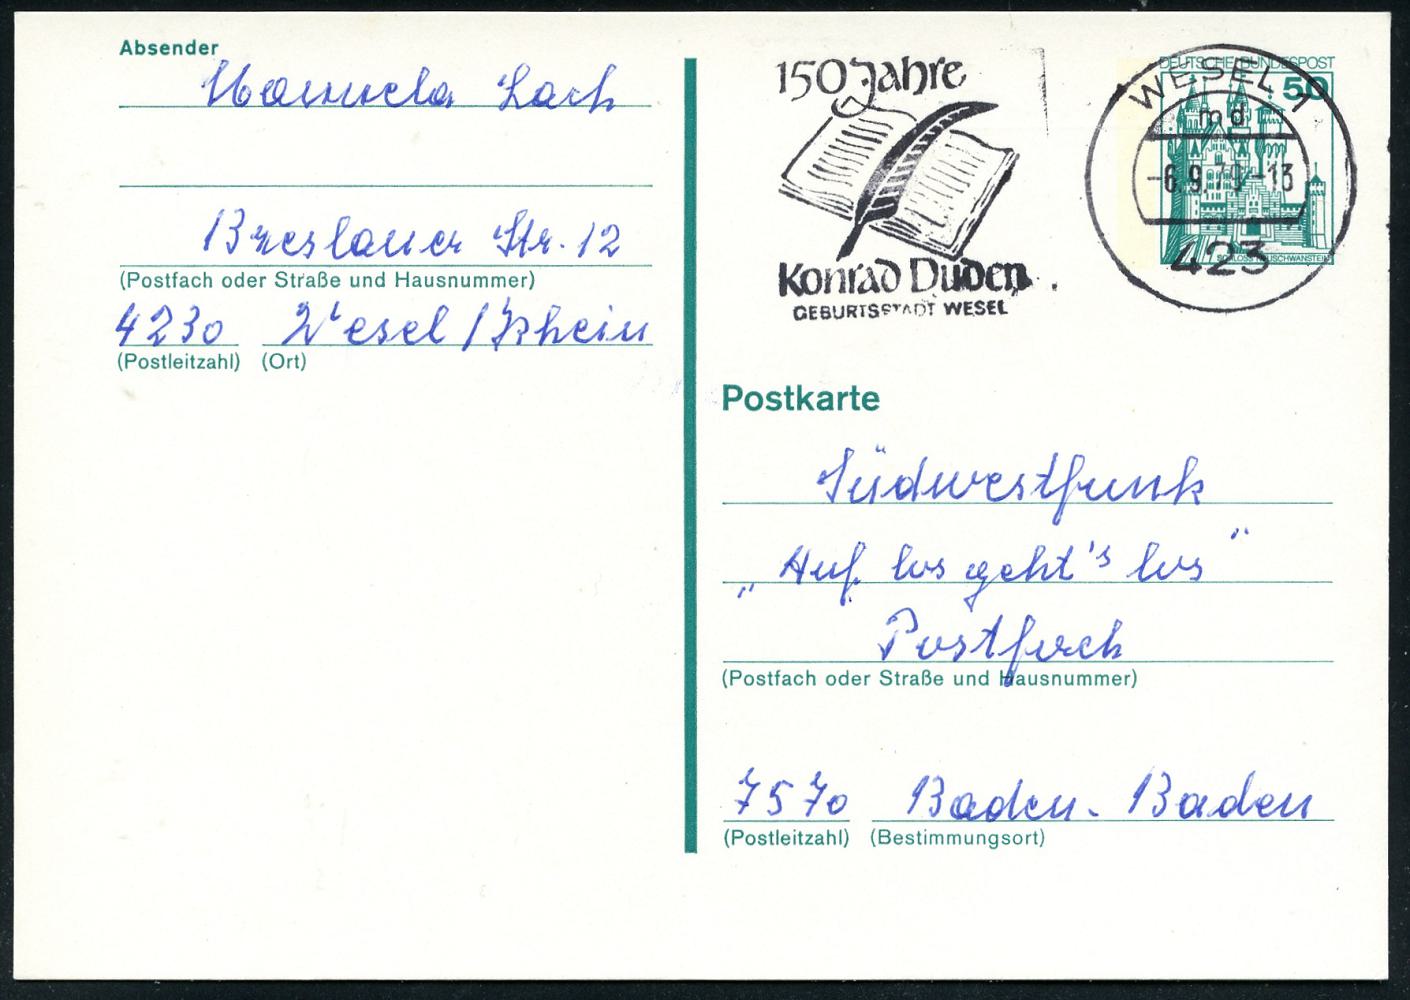 Absender
Manuela Lach
Breslauer Str. 12
(Postfach oder Straße und Hausnummer)
4230 Wesel / Rhein
(Postleitzahl) (Ort)
150 Jahre
Konrad Duden
GEBURTSSTADT WESEL
DEUTSCHE BUNDESPOST
50
WESEL 1
md
-6.9.79-13
423
SCHLOSS NEUSCHWANSTEIN
Postkarte
Südwestfunk
„Auf los geht's los"
Postfach
(Postfach oder Straße und Hausnummer)
7570 Baden-Baden
(Postleitzahl) (Bestimmungsort)